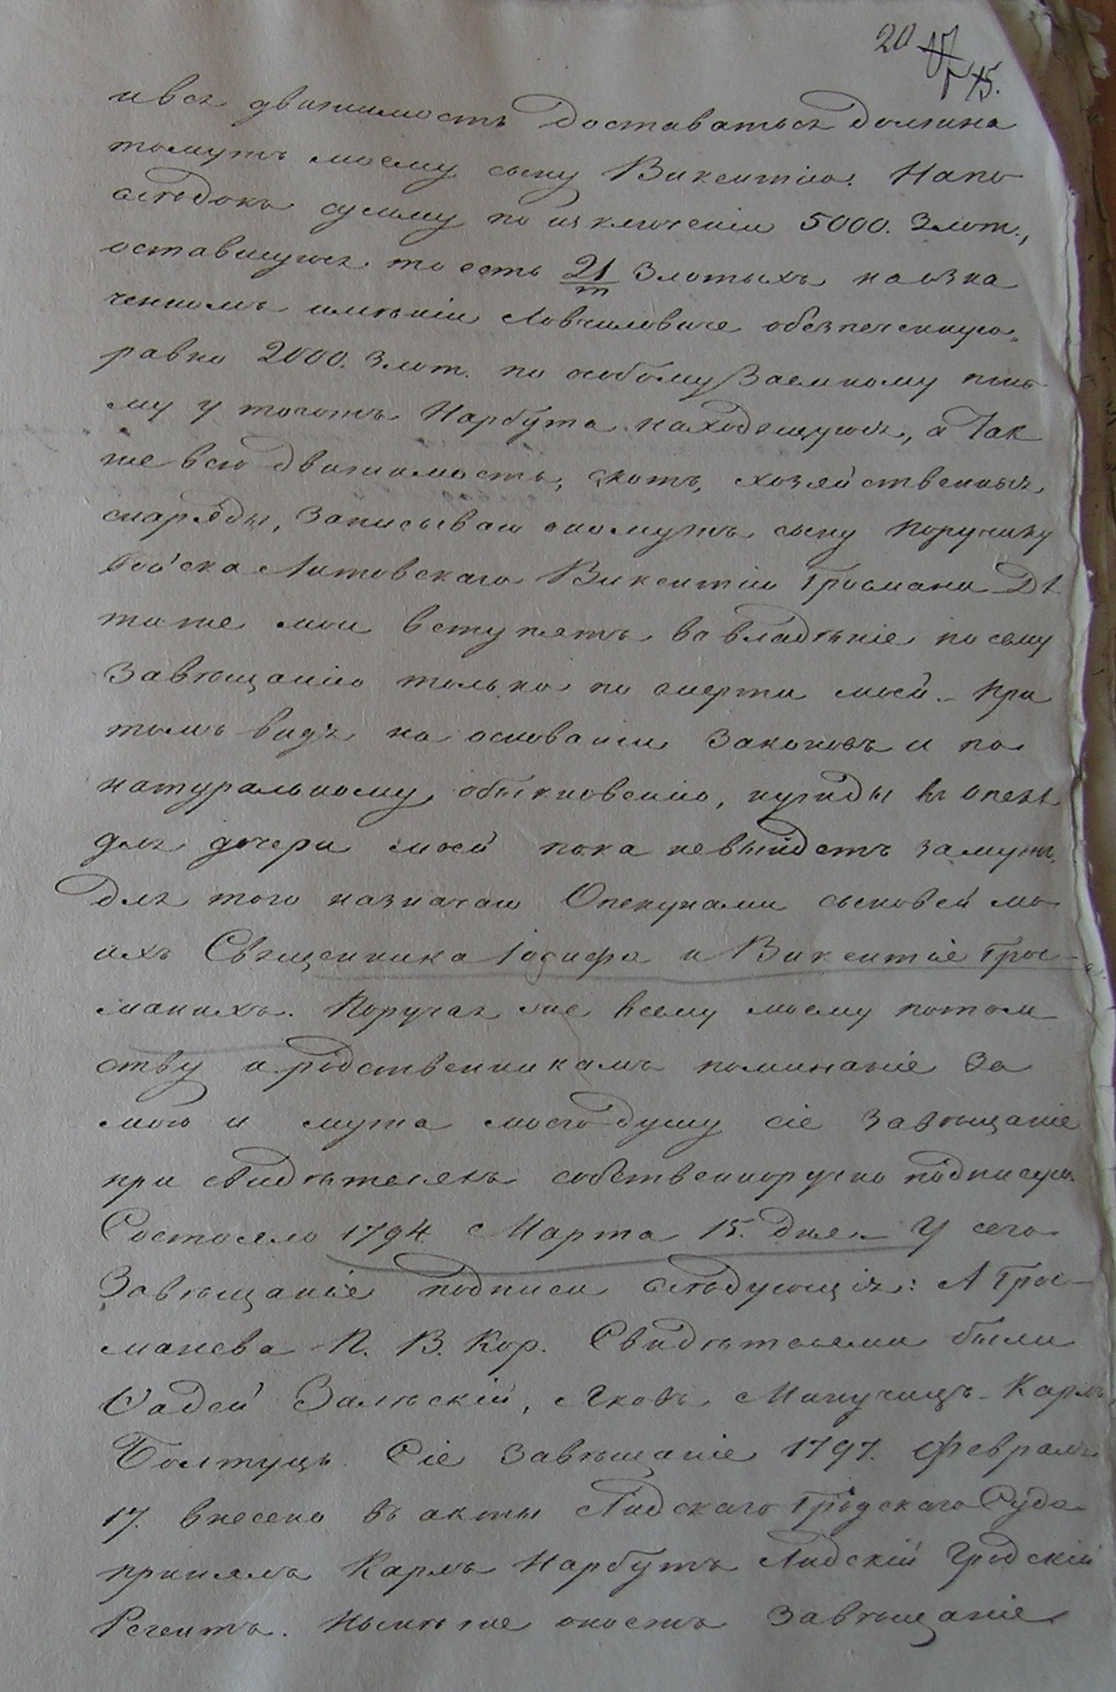 20
15.
и вся движимость доставаться должна
томужъ моему сыну Викентію. Напо
слѣдокъ сумму по изключеніи 5000. Злот.,
оставшуюся то есть 21/m Злотыхъ на озна
ченномъ имѣніи Ловчиловиче обезпеченную,
равно 2000. Злот. по особому Заемному пись
му у тогожъ Нарбута находящуюся, а Так
же всю движимость, скотъ, хозяйственныя
снаряды, Записываю ономужъ сыну Поручику
Войска Литовскаго Викентію Гросману. Дѣ
ти же мои вступятъ во владѣніе по сему
Завѣщанію только по смерти моей. При
томъ видя на основаніи Законовъ и по
натуральному обыкновенію, нужды въ опекѣ
для дочери моей пока невыйдетъ замужъ,
Для того назначаю Опекунами сыновей мо
ихъ Священника Іосифа и Викентіе Грос-
мановъ. Поручая же всему моему потом
ству и родственникамъ поминаніе За
мою и мужа моего душу сіе Завѣщаніе
при свидѣтеляхъ собственноручно подписую.
Состояло 1794 Марта 15. Дня. У сего
Завѣщаніе подписи слѣдующія: А Грос-
манова П. В. Кор. Свидѣтелями были
Фадей Залѣскій, Яковъ Карлъ
Болтуць. Сіе Завѣщаніе 1797. Февраля
17. внесено въ акты Лидскаго Гродскаго Суда
принялъ Карлъ Нарбутъ Лидскій Гродскій
Регентъ. Нынѣ же оность Завѣщаніе